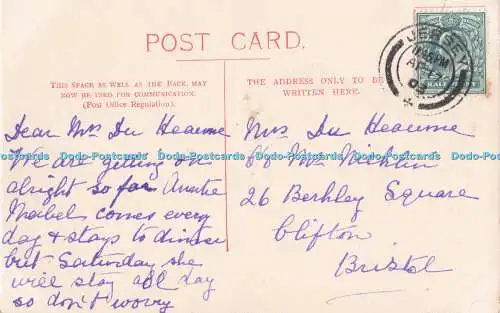 POST CARD.
THIS SPACE AS WELL AS THE BACK, MAY
NOW BE USED FOR COMMUNICATION.
(Post Office Regulation).
THE ADDRESS ONLY TO BE
WRITTEN HERE.
JERSEY
Dear Mrs Du Heaume
We are getting on
alright so far Auntie
Mabel comes every
day & stays to dinner
but Saturday she
will stay all day
so don't worry
Mrs Du Heaume
26 Berkley Square
Clifton
Bristol
Dodo-Postcards Dodo-Postcards Dodo-Postcards Dodo-Postcards Dodo-Postcards Dodo-Postcards